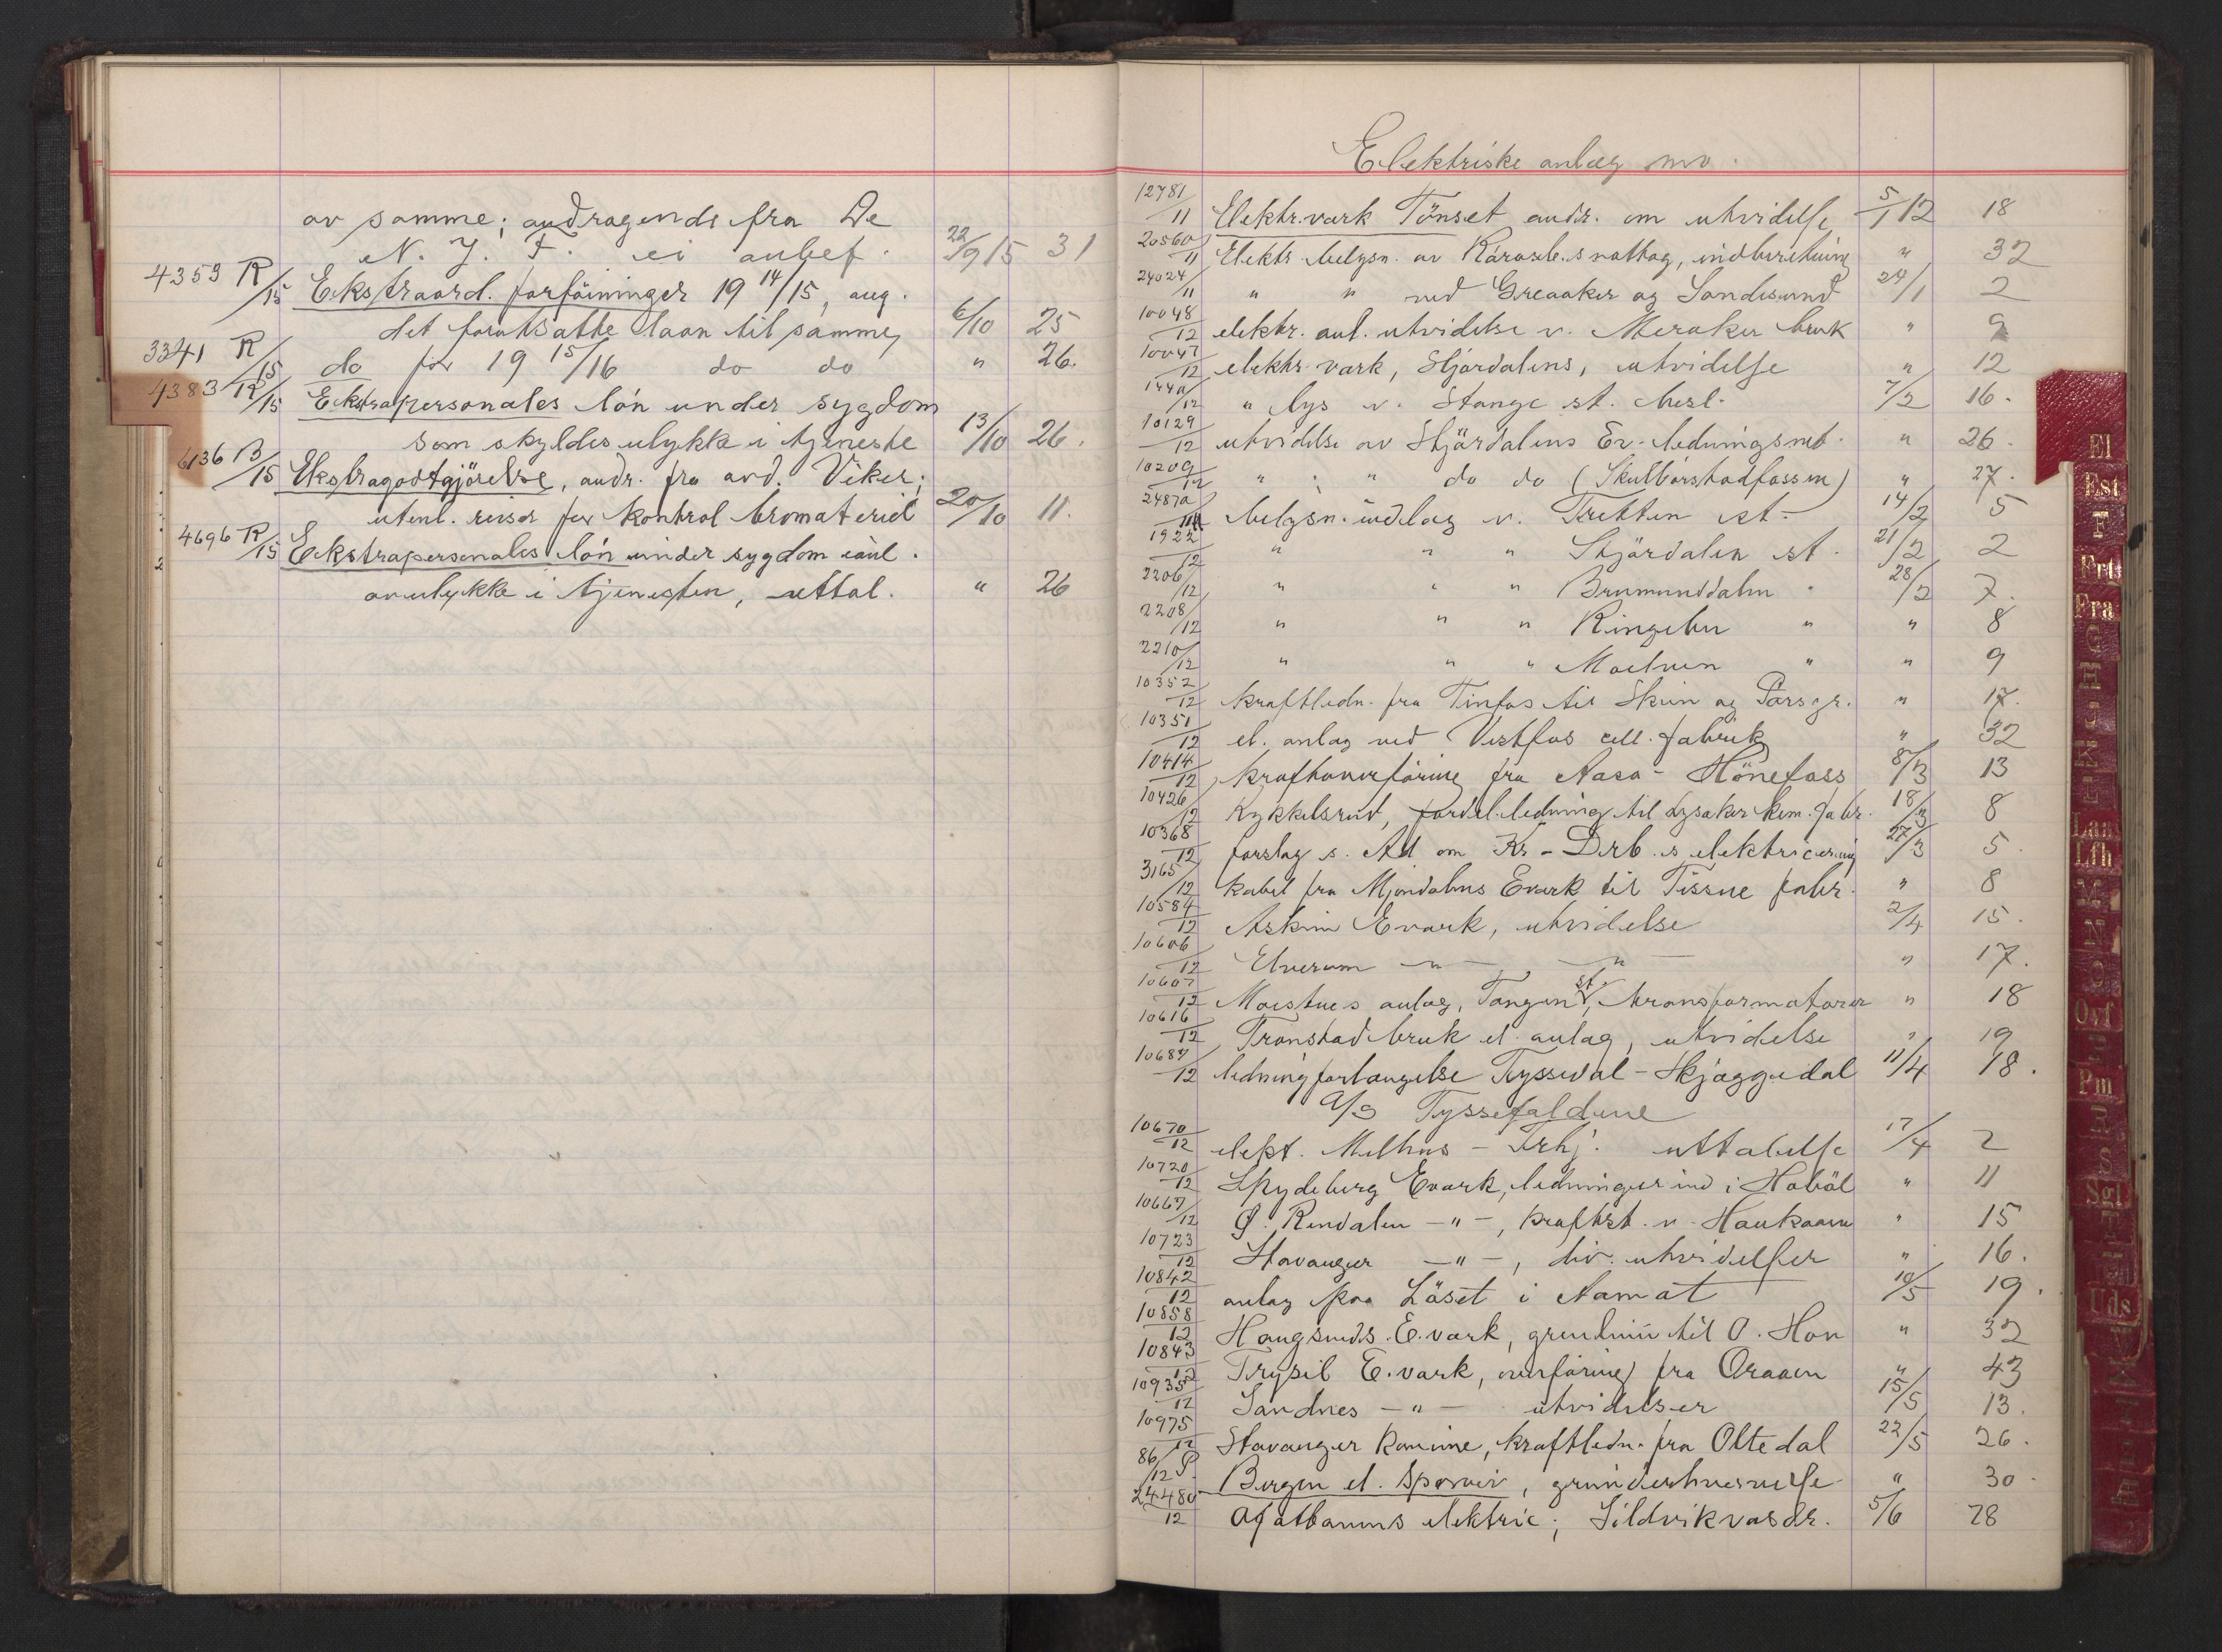 av samme; andragende fra De
N. J. F. ei anbef. 22/9 15 31
4353 R/15 Ekstraord. forföininger 19 14/15, aug.
det forutsatte laan til samme, 6/10 25
3341 R/15 do for 19 15/16 do do " 26.
4383 R/15 Ekstrapersonales lön under sygdom
som skyldes ulykke i tjeneste 13/10 26.
6136 B/15 Ekstragodtgjörelse, andr. fra avd. Viker;
utenl. reiser for kontrol bromateriel 20/10 11.
4696 R/15 Ekstrapersonales lön under sygdom
av ulykke i tjenesten, uttal. " 26
Elektriske anlæg mv.
12781/11 Elektr. værk Tönset andr. om utvidelse 5/1 12 18
20560/11 Elektr. belysn. av Rörosb.s nattog, indberetning " 32
24024/11 " " ved Greaaker og Sandesund 24/1 2
10048/12 elektr. anl. utvidelse v. Meraker bruk " 9
10047/12 elektr. værk, Stjördalens, utvidelse " 12
1440/12 " lys v. Stange st. 7/2 16.
10129/12 utvidelse av Stjördalens Ev. ledningsnet. " 26.
10209/12 " " do do (Skulbörstadfossen) " 27.
24870/11 belysn. indlæg v. Tretten st. 14/2 5
1922/12 " " " Stjördalen st. 21/2 2
2206/12 " " " Brumunddalen " 28/2 7.
2208/12 " " " Ringebu " " 8
2210/12 " " " Moelven " " 9
10352/12 kraftledn. fra Tinfos til Skien og Porsgr. " 17.
10351/12 el. anlæg ved Vestfos cell. fabrik " 32
10414/12 kraftoverföring fra Aasa - Hönefoss 8/3 13
10426/12 Kykkelsrud, fordel. ledning til Lysaker kem. fabr. 18/3 8
10368/12 forslag s. Ad om Kr - Drb. s elektricering 27/3 5.
3165/12 kabel fra Mjöndalens Eværk til Tissue fabr. " 8
10584/12 Askim Eværk, utvidelse 2/4 15.
10606/12 Elverum - " - - " - " 17.
10607/12 Moestues anlæg, Tangen st., transformatorer " 18
10616/12 Tronstad bruk el. anlæg, utvidelse " 19
10687/12 ledning forlængelse Tyssedal - Skjæggedal 11/4 18.
A/S Tyssefaldene
10670/12 elekt. Melhus - Trhj. uttalelse 17/4 2
10720/12 Spydeberg Eværk, ledninger ind i Hoböl " 11
10667/12 Ø. Rendalen - " -, kraftst. v. Haukaaen " 15
10723/12 Stavanger - " -, div. utvidelser " 16.
10842/12 anlæg paa Löset i Aamot 10/5 19.
10858/12 Haugsunds. E. værk, grenlinie til O. Hon " 32
10843/12 Trysil E. værk, overföring fra Oraaen " 43
10935/12 Sandnes - " - utvidelser 15/5 13.
10975/12 Stavanger komune, kraftledn. fra Oltedal 22/5 26.
86/12 P. Bergen el. sporvei, grunderhvervelse " 30.
24480/12 Ofotbanens elektric; Sildvikvasdr. 5/6 28
El
Est
F
Frt
Fra
G
H
J
K
L
Lan
Lfh
M
N
O
Ovf
P
Pm
R
S
Sgl
T
U
Uds